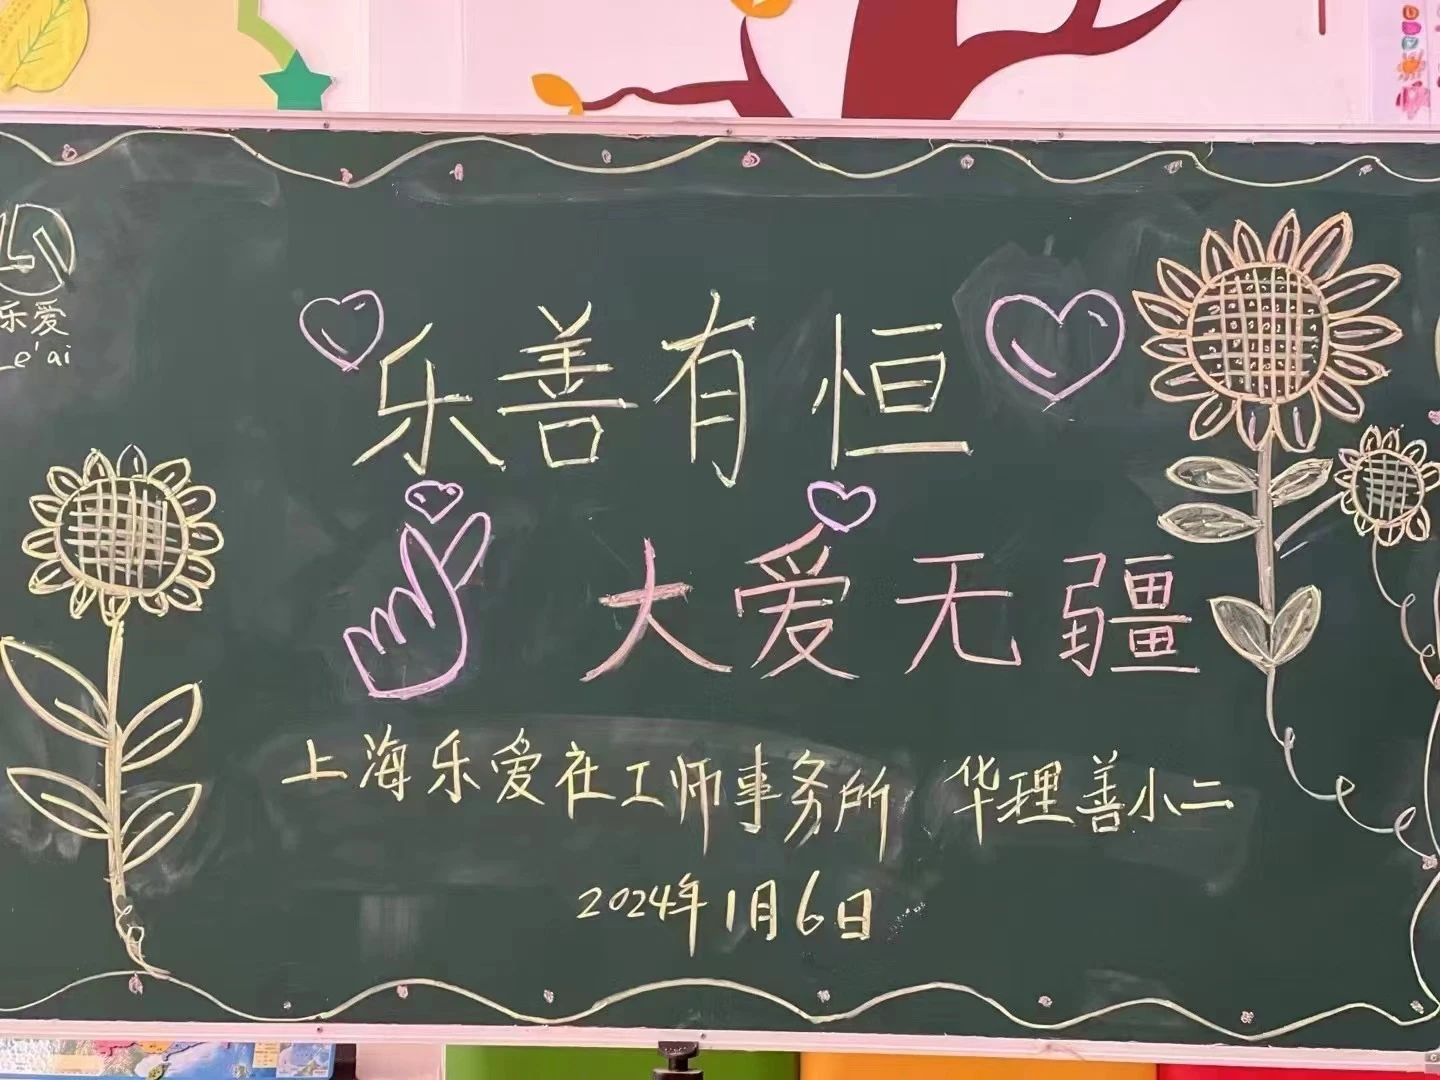 乐爱
Le'ai
乐善有恒
大爱无疆
上海乐爱社工师事务所 华理善小二
2024年1月6日